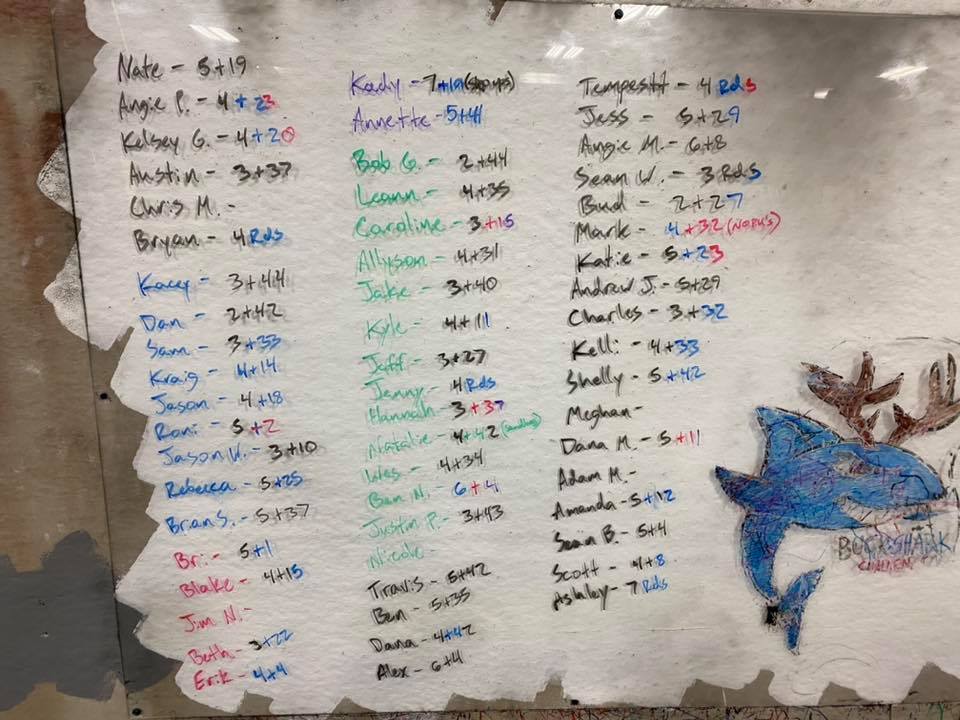 Nate - 5+19
Angie P. - 4 + 23
Kelsey G. - 4+20
Austin - 3+37
Chris M. -
Bryan - 4 Rds
Kacey - 3+44
Dan - 2+42
Sam - 3+33
Kraig - 4+14
Jason - 4+18
Roni - 5+2
Jason W. - 3+10
Rebecca - 5+25
Brian S. - 5+37
Bri - 5+1
Blake - 4+15
Jim N. -
Beth - 3+22
Erik - 4+4
Kady - 7+19
Annette - 5+41
Bob G. - 2+44
Leann - 4+35
Caroline - 3+15
Allyson - 4+31
Jake - 3+40
Kyle - 4+11
Jeff - 3+27
Jenny - 4 Rds
Hannah 3+37
Natalie - 4+42
Wes - 4+34
Ben N. - 6+4
Justin P. - 3+43
Nicole
Travis - 5+42
Ben - 5+35
Dana - 4+42
Alex - 6+4
Tempestt - 4 Rds
Jess - 5+29
Angie M. - 6+8
Sean W. - 3 Rds
Bud - 2+27
Mark - 4+32
Katie - 5+23
Andrew J. - 5+29
Charles - 3+32
Kelli - 4+33
Shelly - 5+42
Meghan -
Dana M. - 5+11
Adam M. -
Amanda - 5+12
Sean B. - 5+4
Scott - 4+8
Ashley - 7 Rds
BUCKSHARK